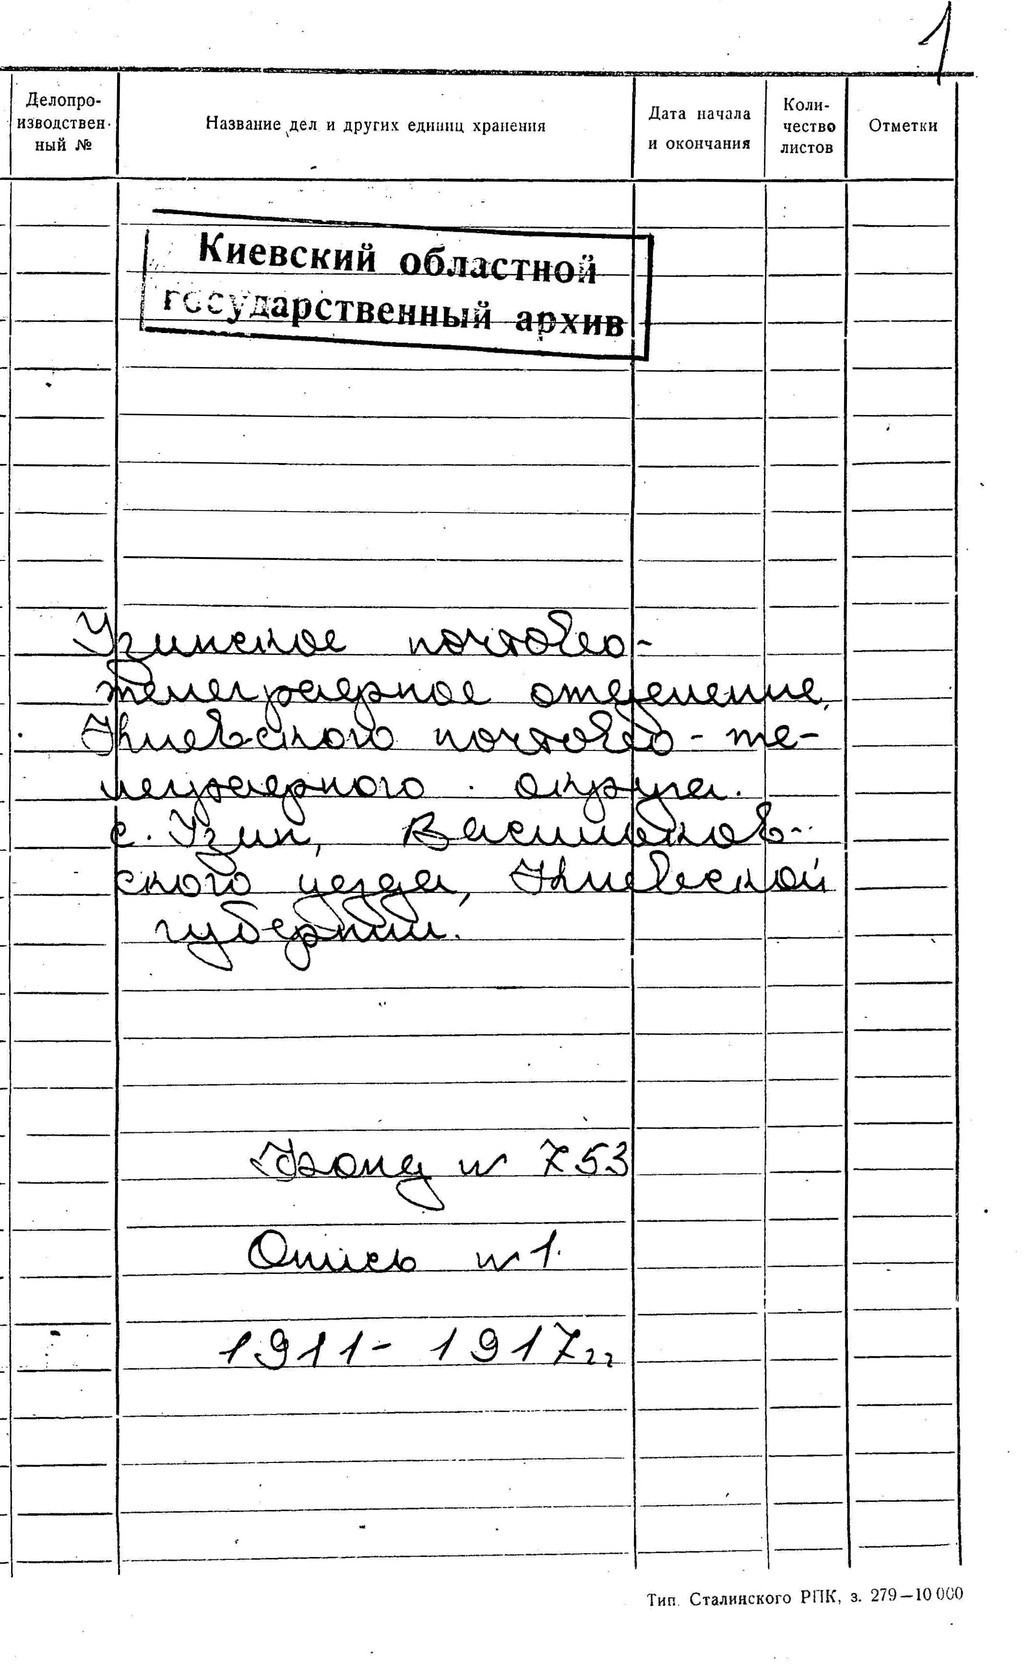 1
Делопро-
изводствен-
ный №
Название дел и других единиц хранения
Дата начала
и окончания
Коли-
чество
листов
Отметки
Киевский областной
государственный архив
Узинское почтово-
телеграфное отделение,
Киевского почтово-те-
леграфного округа.
с. Узин, Васильков-
ского уезда, Киевской
губернии.
Фонд № 753
Опись №1.
1911-1917гг
Тип. Сталинского РПК, з. 279—10 000